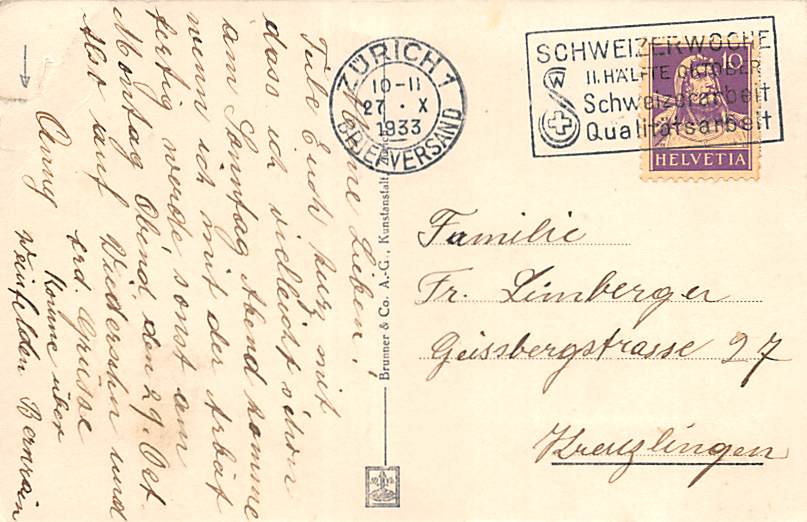 Meine Lieben!
Teile Euch kurz mit
dass ich vielleicht schon
am Sonntag Abend komme
wenn ich mit der Arbeit
fertig werde sonst am
Montag Abend, den 29. Oct.
Also auf Wiedersehn und
frd. Grüsse
Anny
Komme über
Weinfelden Bernrain
ZÜRICH 1
10-11
27 · X
1933
BRIEFVERSAND
SCHWEIZERWOCHE
II. HÄLFTE OKTOBER
Schweizerarbeit
Qualitätsarbeit
W
10
HELVETIA
Brunner & Co. A.-G., Kunstanstalt,
Familie
Fr. Limberger
Geissbergstrasse 27
Kreuzlingen